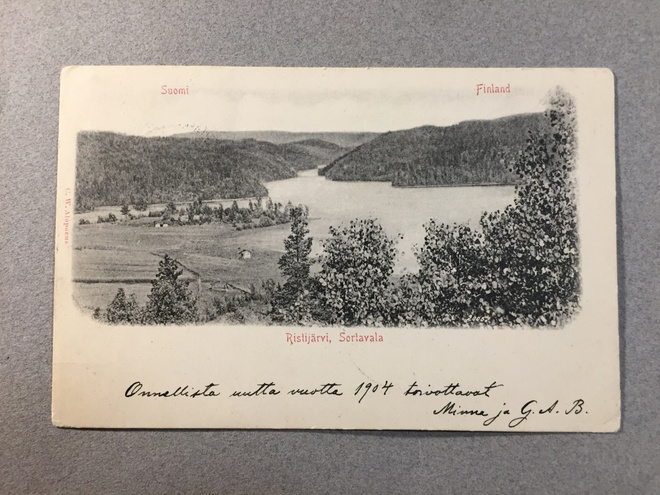 Suomi
Finland
G. W. Alopaeus
Ristijärvi, Sortavala
Onnellista uutta vuotta 1904 toivottavat
Minna ja G. A. B.